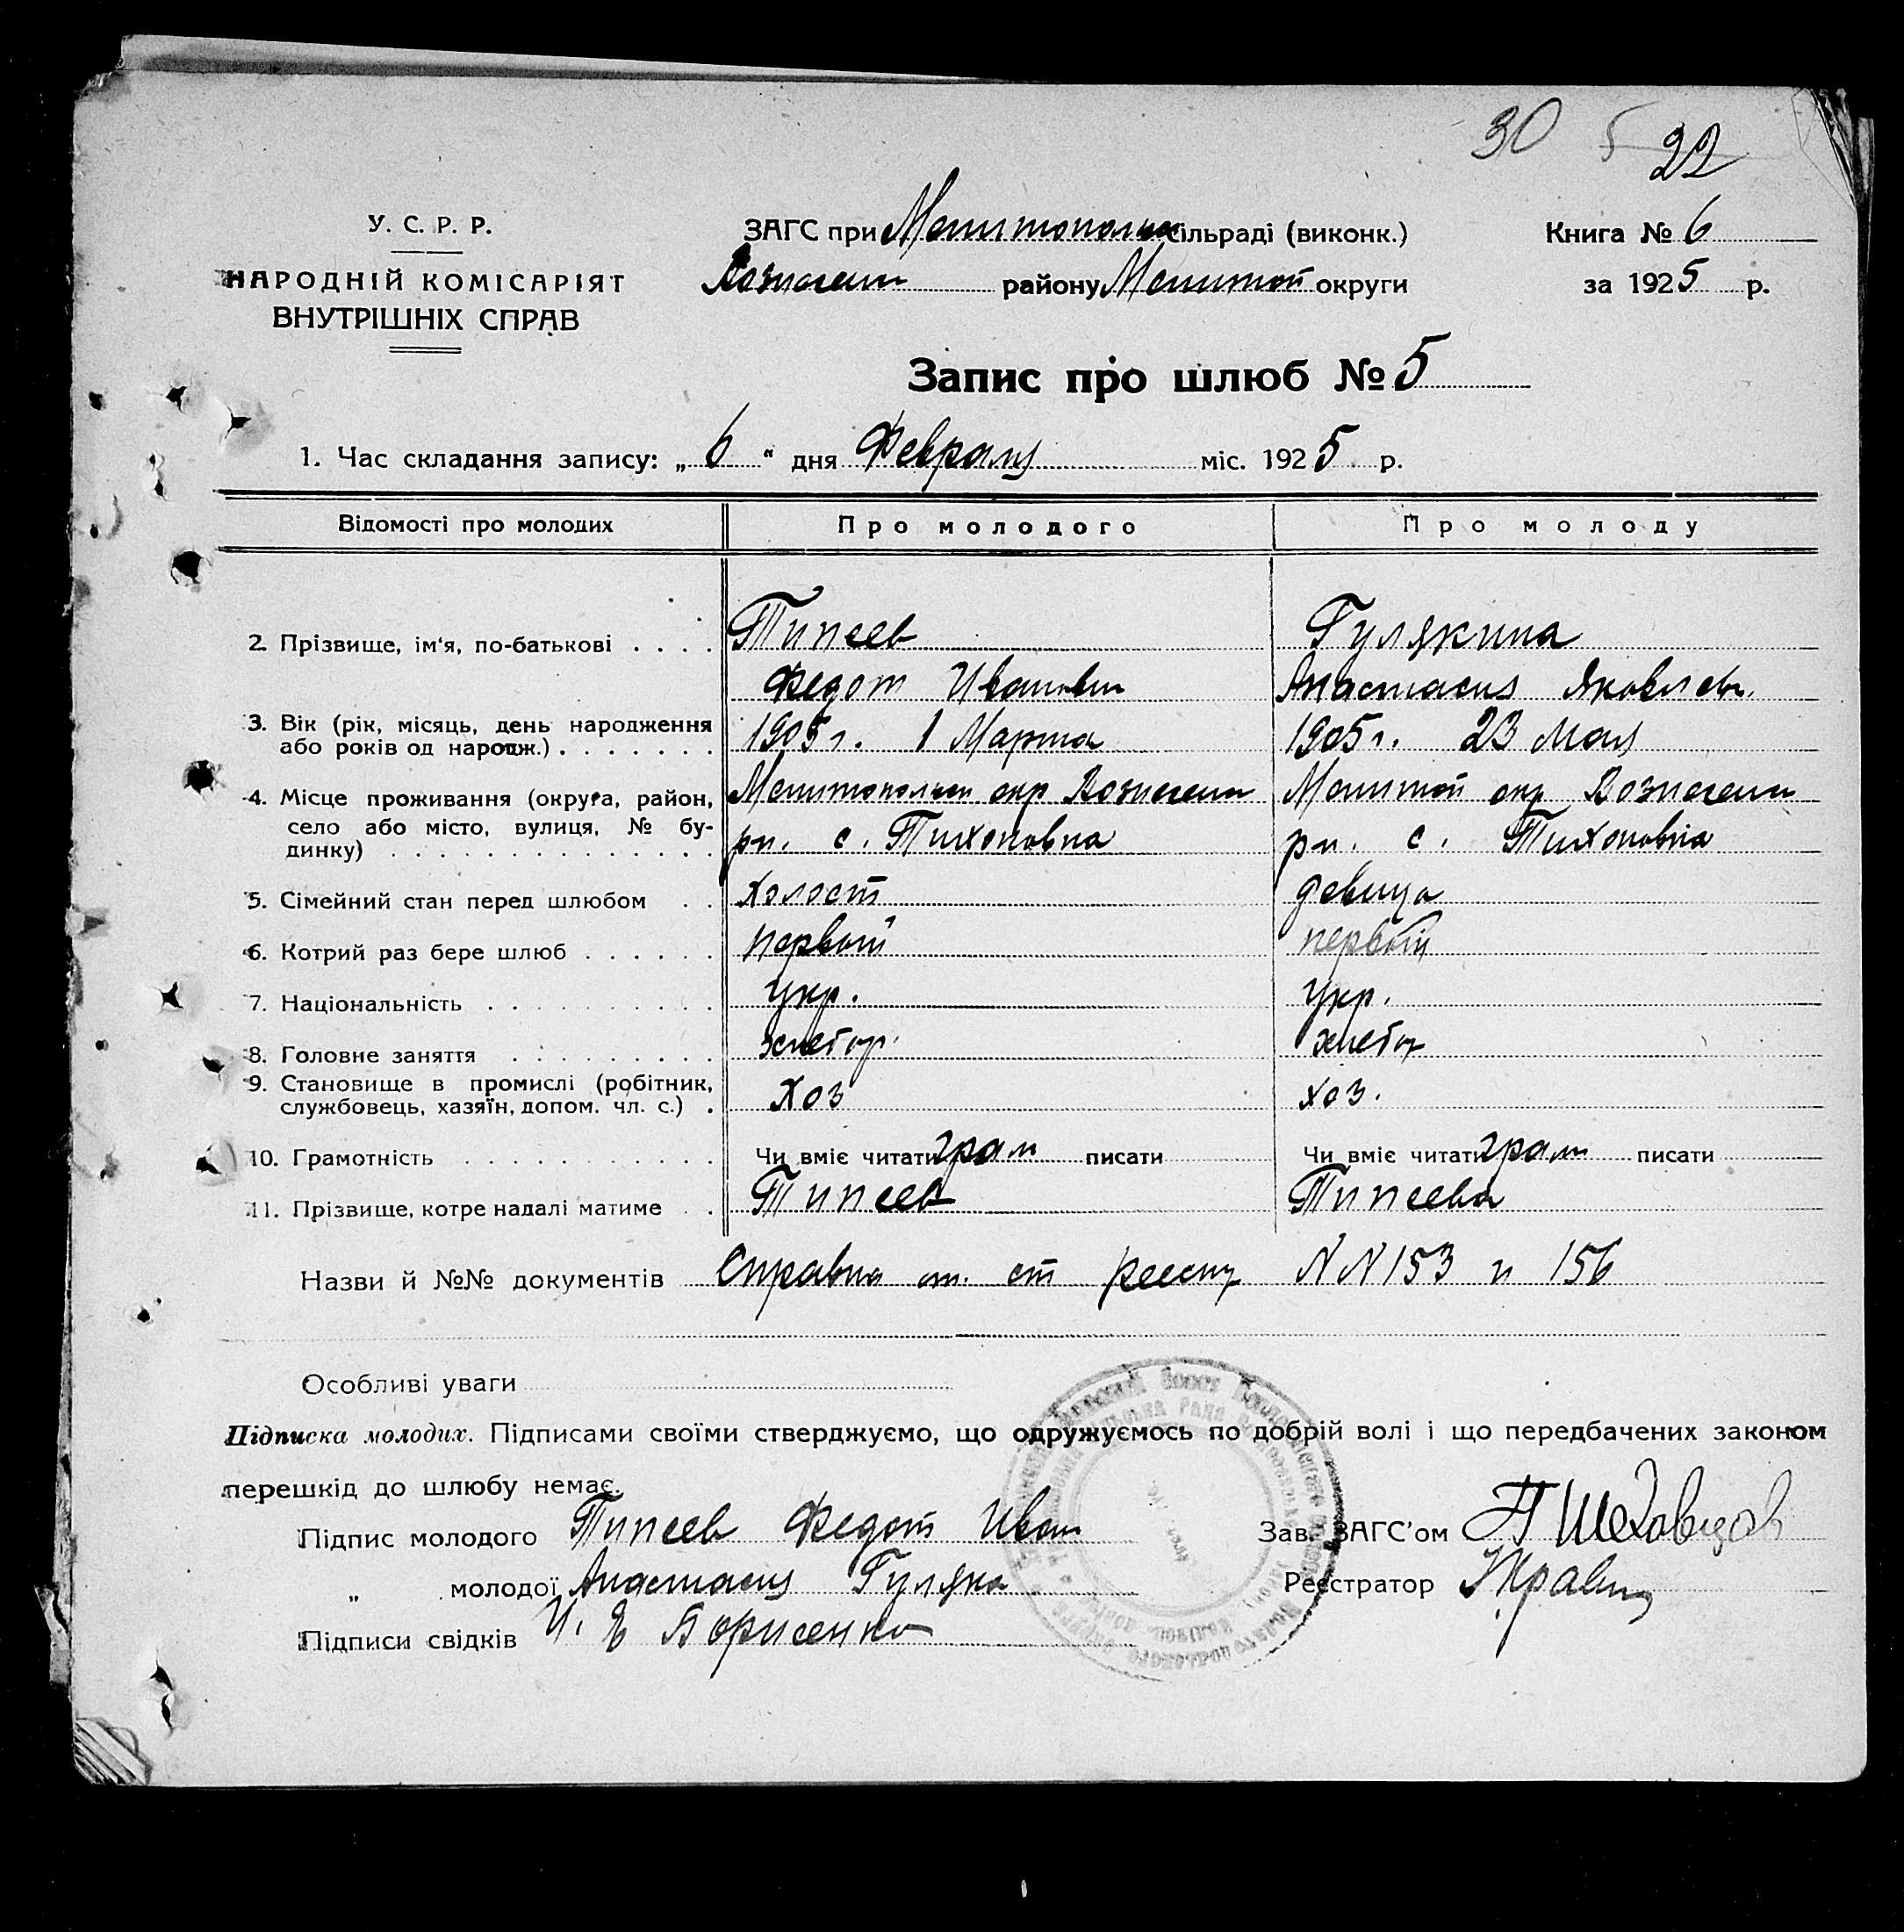 30 5 22
У. С. Р. Р.
НАРОДНІЙ КОМІСАРІЯТ
ВНУТРІШНІХ СПРАВ
ЗАГС при Мелитопольск сільраді (виконк.)
Вознесен району Мелитоп округи
Книга № 6
за 1925 р.
Запис про шлюб № 5
1. Час складання запису: „ 6 “ дня Февраля міс. 1925 р.
Відомості про молодих Про молодого Про молоду
2. Прізвище, ім'я, по-батькові . . . . Типсев Гулякина
Федот Иванович Анастасия Яковлевн.
3. Вік (рік, місяць, день народження 1905 г. 1 Марта 1905 г. 23 Мая
або років од народж.) . . . . . . .
4. Місце проживання (округа, район, Мелитопольск окр Вознесен Мелитоп окр Вознесен
село або місто, вулиця, № бу- рн. с. Тихоновка рн. с. Тихоновка
динку) . . . . . . . . . . . . . .
5. Сімейний стан перед шлюбом . . холост девица
6. Котрий раз бере шлюб . . . . . . первый первый
7. Національність . . . . . . . . . . укр. укр.
8. Головне заняття . . . . . . . . . хлебор. хлебор
9. Становище в промислі (робітник, хоз хоз.
службовець, хазяїн, допом. чл. с.) .
10. Грамотність . . . . . . . . . . . Чи вміє читати грам писати Чи вміє читати грам писати
11. Прізвище, котре надалі матиме . . Типсев Типсева
Назви й №№ документів Справка от. ст N N 153 и 156
Особливі уваги
Підписка молодих. Підписами своїми стверджуємо, що одружуємось по добрій волі і що передбачених законом
перешкід до шлюбу немає.
Підпис молодого Типсев Федот Иван Зав. ЗАГС'ом П Шеховцов
„ молодої Анастасия Гуляка Реєстратор
Підписи свідків И. Я Борисенко